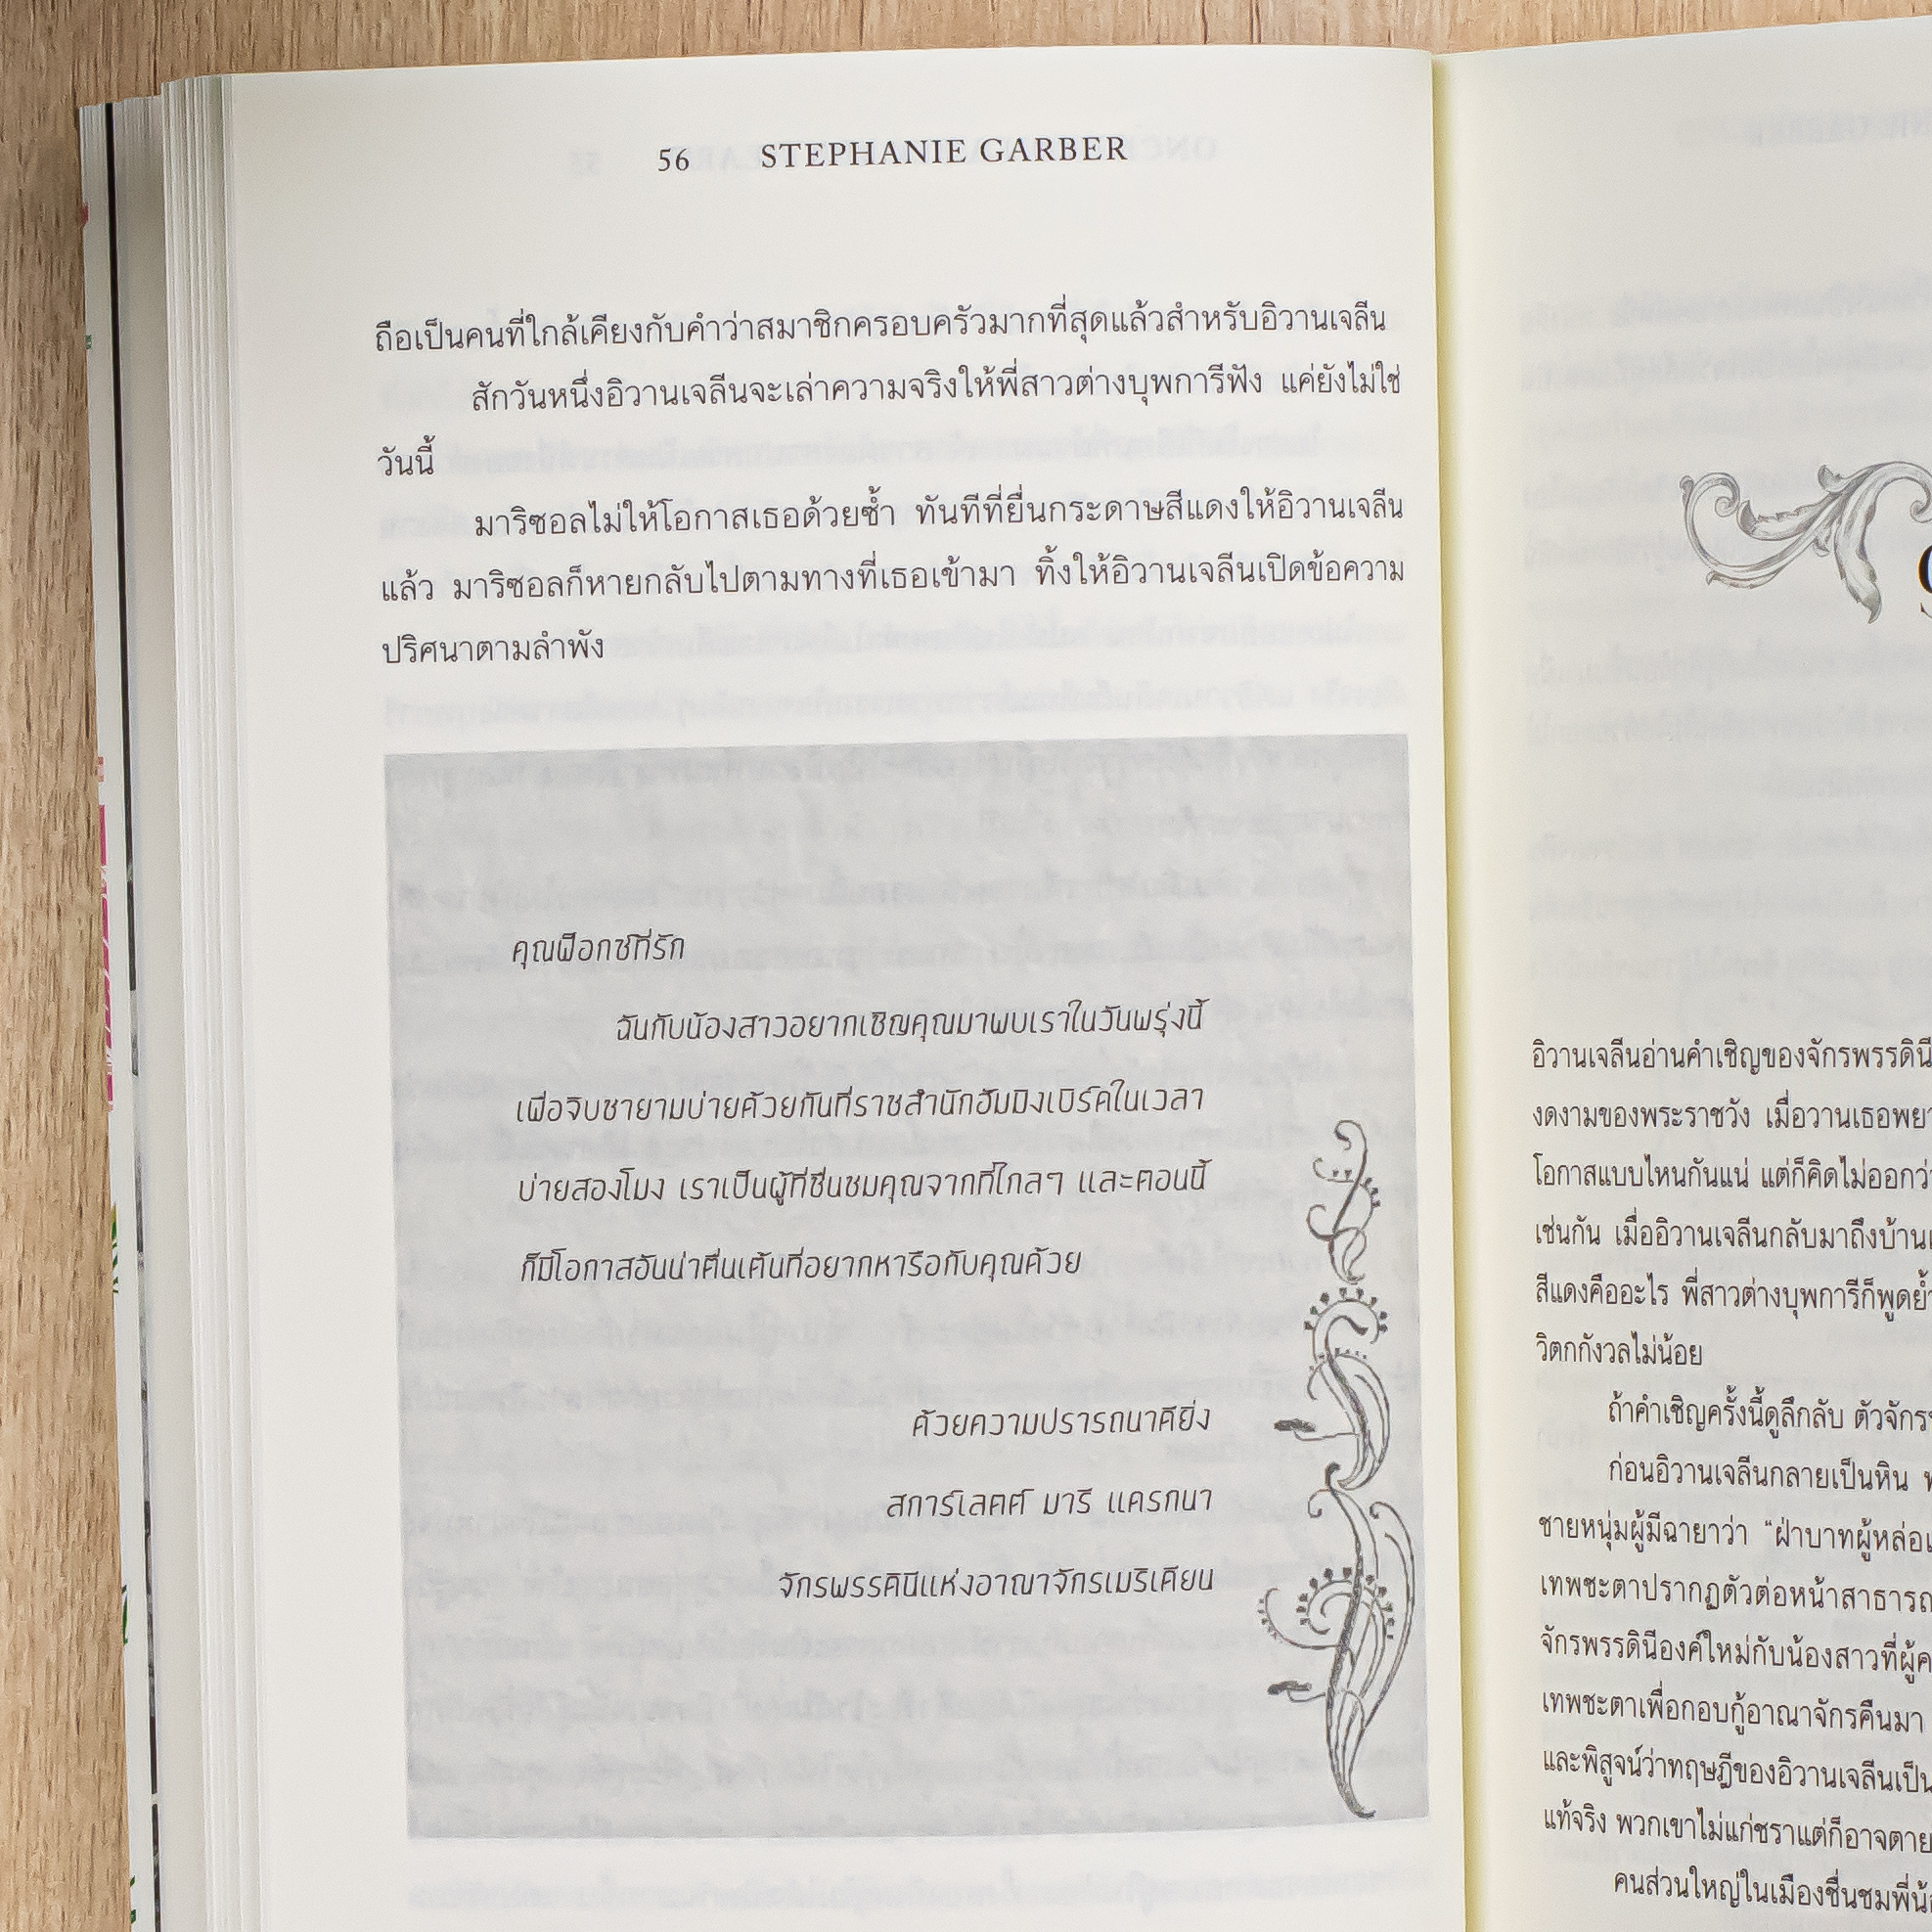 56 STEPHANIE GARBER
ถือเป็นคนที่ใกล้เคียงกับคำว่าสมาชิกครอบครัวมากที่สุดแล้วสำหรับอิวานเจลีน
สักวันหนึ่งอิวานเจลีนจะเล่าความจริงให้พี่สาวต่างบุพการีฟัง แค่ยังไม่ใช่
วันนี้
มาริซอลไม่ให้โอกาสเธอด้วยซ้ำ ทันทีที่ยื่นกระดาษสีแดงให้อิวานเจลีน
แล้ว มาริซอลก็หายกลับไปตามทางที่เธอเข้ามา ทิ้งให้อิวานเจลีนเปิดข้อความ
ปริศนาตามลำพัง
คุณฟ็อกซ์ที่รัก
ฉันกับน้องสาวอยากเชิญคุณมาพบเราในวันพรุ่งนี้
เพื่อจิบชายามบ่ายด้วยกันที่ราชสำนักฮัมมิงเบิร์ดในเวลา
บ่ายสองโมง เราเป็นผู้ที่ชื่นชมคุณจากที่ไกลๆ และตอนนี้
ก็มีโอกาสอันน่าตื่นเต้นที่อยากหารือกับคุณด้วย
ด้วยความปรารถนาดียิ่ง
สการ์เลตต์ มารี แดรกนา
จักรพรรดินีแห่งอาณาจักรเมริเดียน
อิวานเจลีนอ่านคำเชิญของจักรพรรดินี
งดงามของพระราชวัง เมื่อวานเธอพยา
โอกาสแบบไหนกันแน่ แต่ก็คิดไม่ออกว่
เช่นกัน เมื่ออิวานเจลีนกลับมาถึงบ้าน
สีแดงคืออะไร พี่สาวต่างบุพการีก็พูดย้ำ
วิตกกังวลไม่น้อย
ถ้าคำเชิญครั้งนี้ดูลึกลับ ตัวจักร
ก่อนอิวานเจลีนกลายเป็นหิน
ชายหนุ่มผู้มีฉายาว่า “ฝ่าบาทผู้หล่อ
เทพชะตาปรากฏตัวต่อหน้าสาธารณ
จักรพรรดินีองค์ใหม่กับน้องสาวที่ผู้ค
เทพชะตาเพื่อกอบกู้อาณาจักรคืนมา
และพิสูจน์ว่าทฤษฎีของอิวานเจลีนเป็น
แท้จริง พวกเขาไม่แก่ชราแต่ก็อาจตาย
คนส่วนใหญ่ในเมืองชื่นชมพี่น้